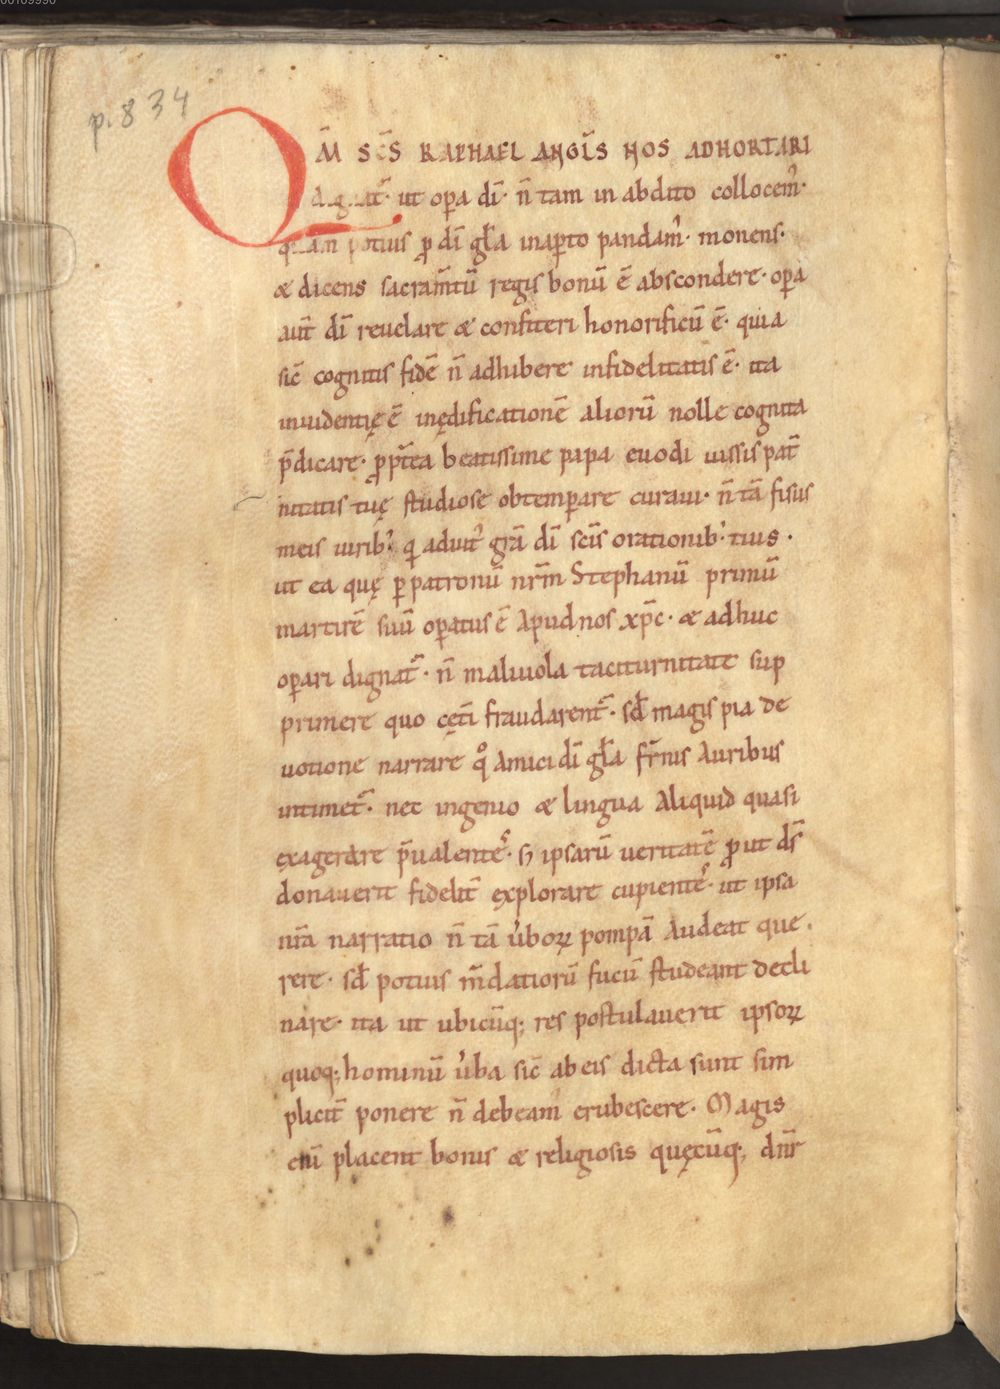 00109990
p. 834
QM̄ SC̄S RAPHAEL ANGL̄S NOS ADHORTARI
ut op̄a dī· n̄ tam in abdito collocem᷑·
p̄ dī gl̄a inap̄to pandam᷑· monens·
æ dicens sacram̄tū regis bonū ē abscondere· op̄a
aut̄ dī reuelare æ confiteri honorificū ē· quia
sic̄ cognitis fidē n̄ adhibere infidelitatis ē· ita
inuidentię ē inędificationē aliorū nolle cognita
p̄dicare· ꝓpt̄ea beatissime papa euodi uissis pat̄
nitatis tuę studiose obtemp̄are curaui· n̄ tā fisus
meis uirib᷒· q̄ adiuit᷑ grā dī scīs orationib᷒· tuis·
ut ea quę ꝑ patronū nr̄m Stephanū primū
martirē suū op̄atus ē Apud nos xp̄c· æ adhuc
op̄ari dignat᷑· n̄ maliuola taciturnitate sup
primere quo cęt̄i fraudarent᷑· sꝫ magis pia de
uotione narrare qͦ Amici dī gl̄a fr̄nis Auribus
intimet᷑· nec ingenio æ lingua Aliquid quasi
exagerare p̄ualente᷒· s; ipsarū ueritatē ꝓut ds̄
donauerit fidelit̄ explorare cupiente᷒· ut ipsa
nr̄a narratio n̄ tā ūboꝝ pompā Audeat que·
rere· sꝫ potius m̄datiorū fucū studeant decli
nare· ita ut ubicūq; res postulauerit ipsoꝝ
quoq; hominū ūba sic̄ ab eis dicta sunt sim
plicit̄ ponere n̄ debeam᷑ erubescere· Magis
eni̅ placent bonis æ religiosis quęcūq; dnr̄